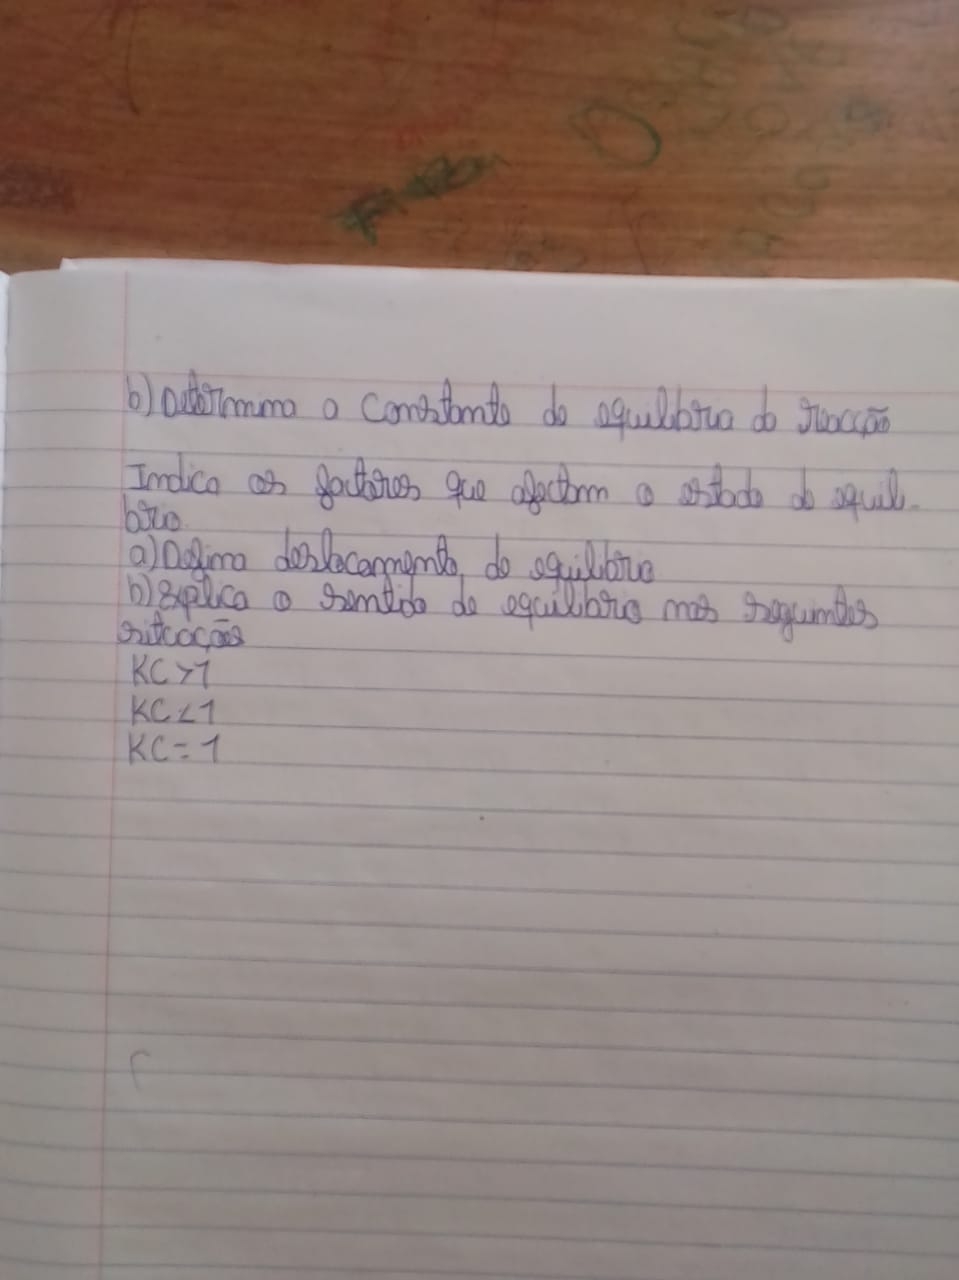 b) Determina a Constante de equilibrio da reacção
Indica os factores que afectam o estado de equili-
brio.
a) Defina deslocamento de equilibrio
b) Explica o sentido de equilibrio nas seguintes
situações
KC > 1
KC < 1
KC = 1